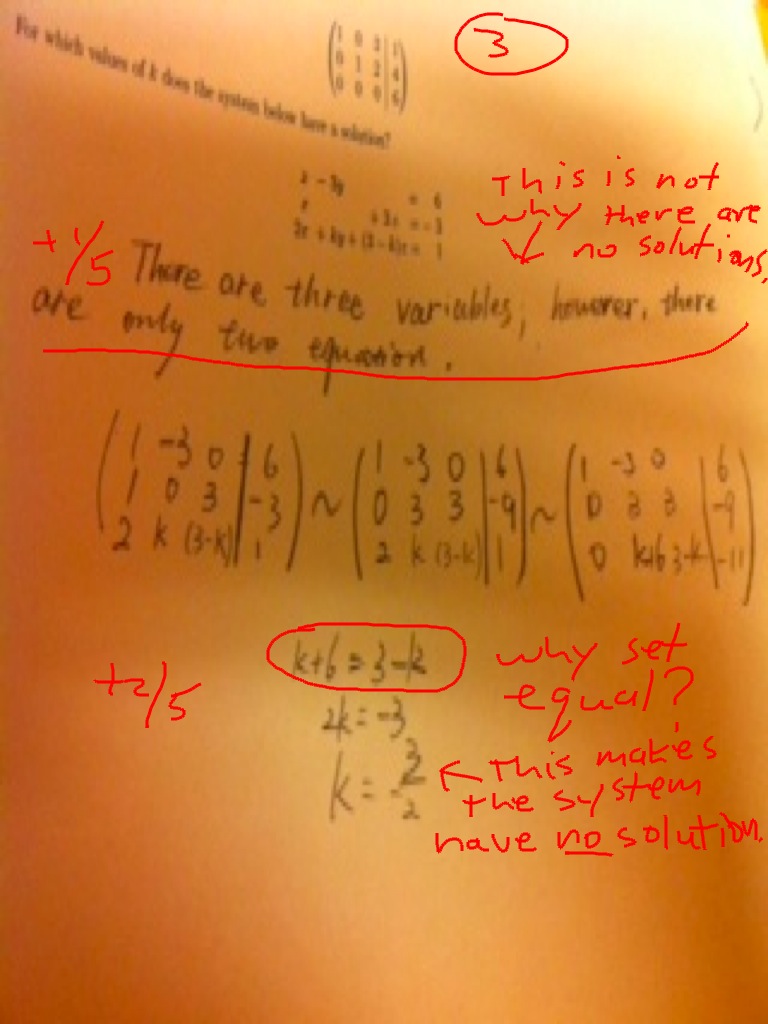 ( 1 0 3 | 1
0 1 2 | 4
0 0 0 | 6 )
3
For which values of k does the system below have a solution?
x - 3y = 6
x + 3z = -3
2x + ky + (3-k)z = 1
This is not
why there are
↓ no solutions.
+1/5
There are three variables; however, there
are only two equation.
( 1 -3 0 | 6
1 0 3 | -3
2 k (3-k) | 1 )
~
( 1 -3 0 | 6
0 3 3 | -9
2 k (3-k) | 1 )
~
( 1 -3 0 | 6
0 3 3 | -9
0 k+6 3-k | -11 )
k+6 = 3-k
2k = -3
k = -3/2
+2/5
why set
equal?
← This makes
the system
have no solution.